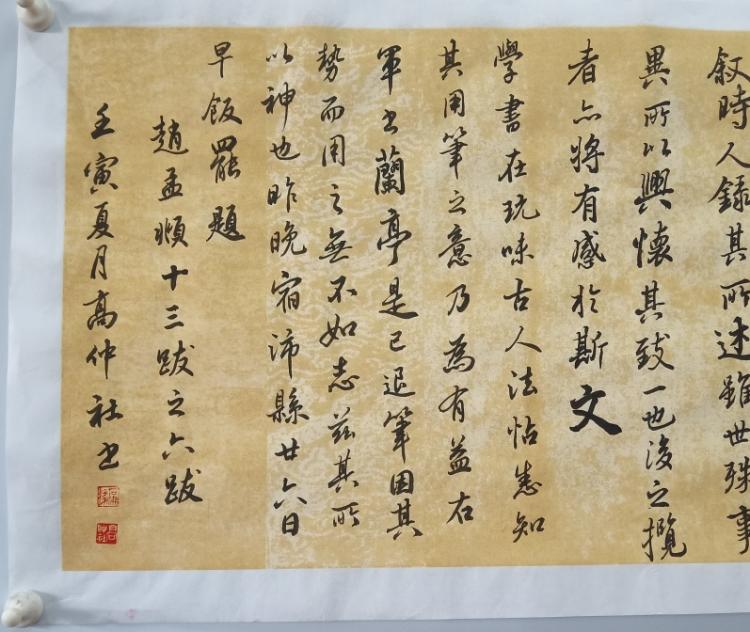 敘時人錄其所述雖世殊事
異所以興懷其致一也後之攬
者亦將有感於斯文
學書在玩味古人法帖悉知
其用筆之意乃為有益右
軍書蘭亭是已退筆因其
勢而用之無不如志茲其所
以神也昨晚宿沛縣廿六日
早飯罷題
趙孟頫十三跋之六跋
壬寅夏月高仲社书